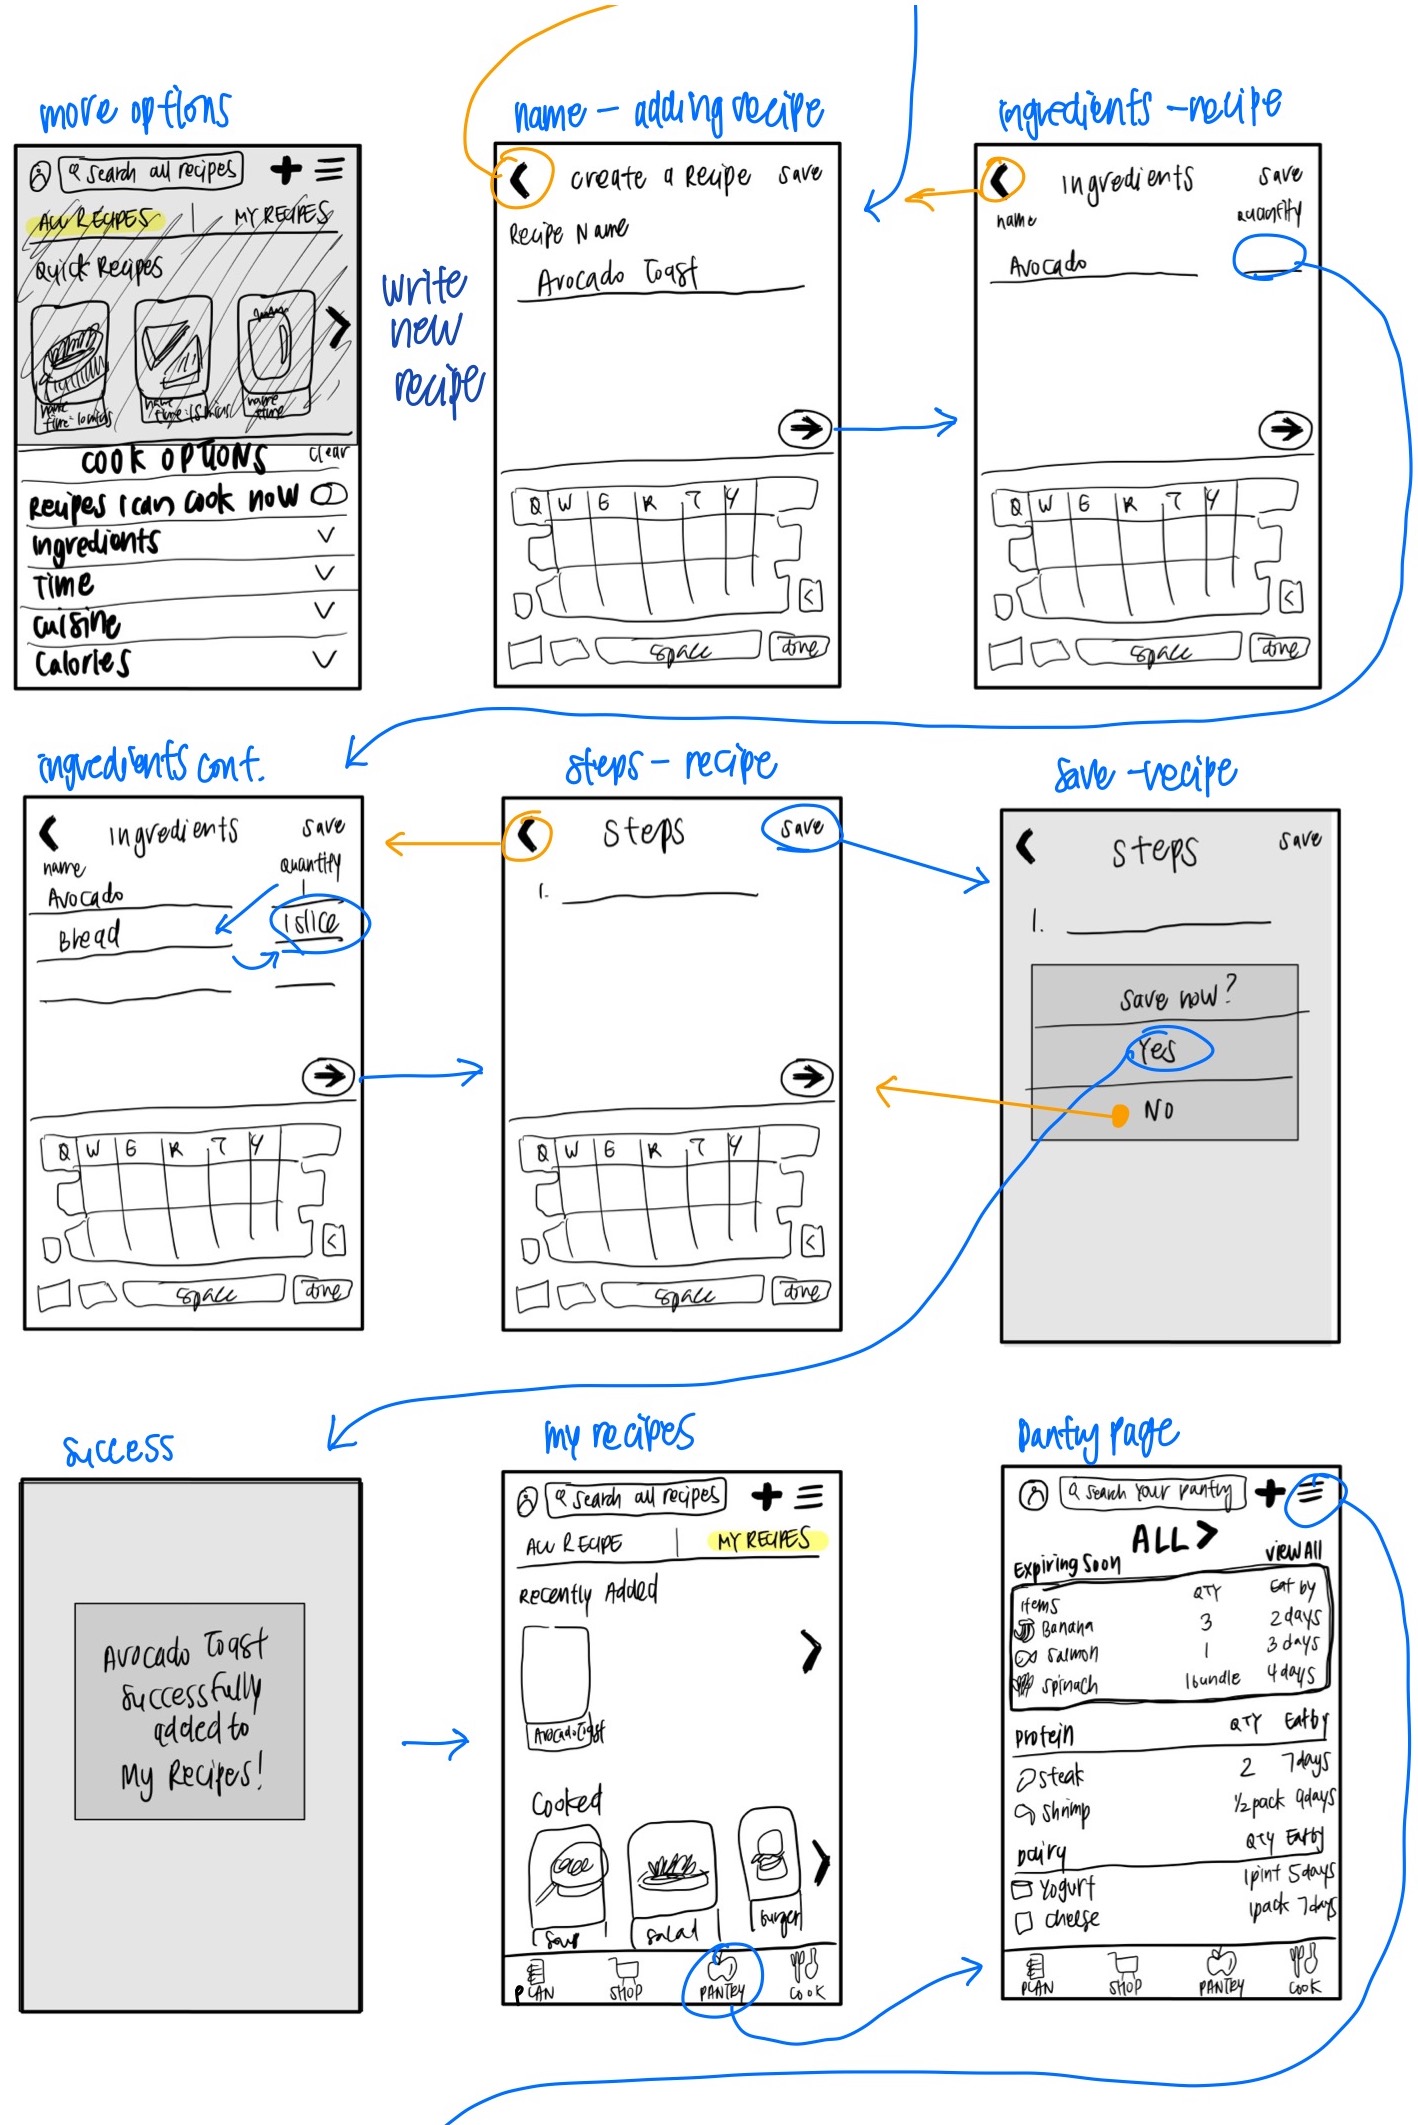 more options
search all recipes
ALL RECIPES | MY RECIPES
Quick Recipes
name
time: 10 mins
name
time: 15 mins
name
time
COOK OPTIONS clear
Recipes I can cook now
Ingredients
Time
Cuisine
Calories
write
new
recipe
name - adding recipe
Create a Recipe save
Recipe Name
Avocado Toast
Q W E R T Y
space done
ingredients - recipe
Ingredients save
name quantity
Avocado
Q W E R T Y
space done
ingredients cont.
Ingredients save
name quantity
Avocado 1
Bread 1 slice
Q W E R T Y
space done
steps - recipe
Steps save
1.
Q W E R T Y
space done
save - recipe
Steps save
1.
Save now?
Yes
NO
success
Avocado Toast
successfully
added to
My Recipes!
my recipes
search all recipes
ALL RECIPE | MY RECIPES
Recently Added
Avocado Toast
Cooked
Soup Salad Burger
PLAN SHOP PANTRY COOK
Pantry Page
search your pantry
ALL >
Expiring Soon view All
items QTY Eat by
Banana 3 2 days
Salmon 1 3 days
spinach 1 bundle 4 days
Protein QTY Eat by
steak 2 7 days
shrimp 1/2 pack 9 days
Dairy QTY Eat by
Yogurt 1 pint 5 days
cheese 1 pack 7 days
PLAN SHOP PANTRY COOK